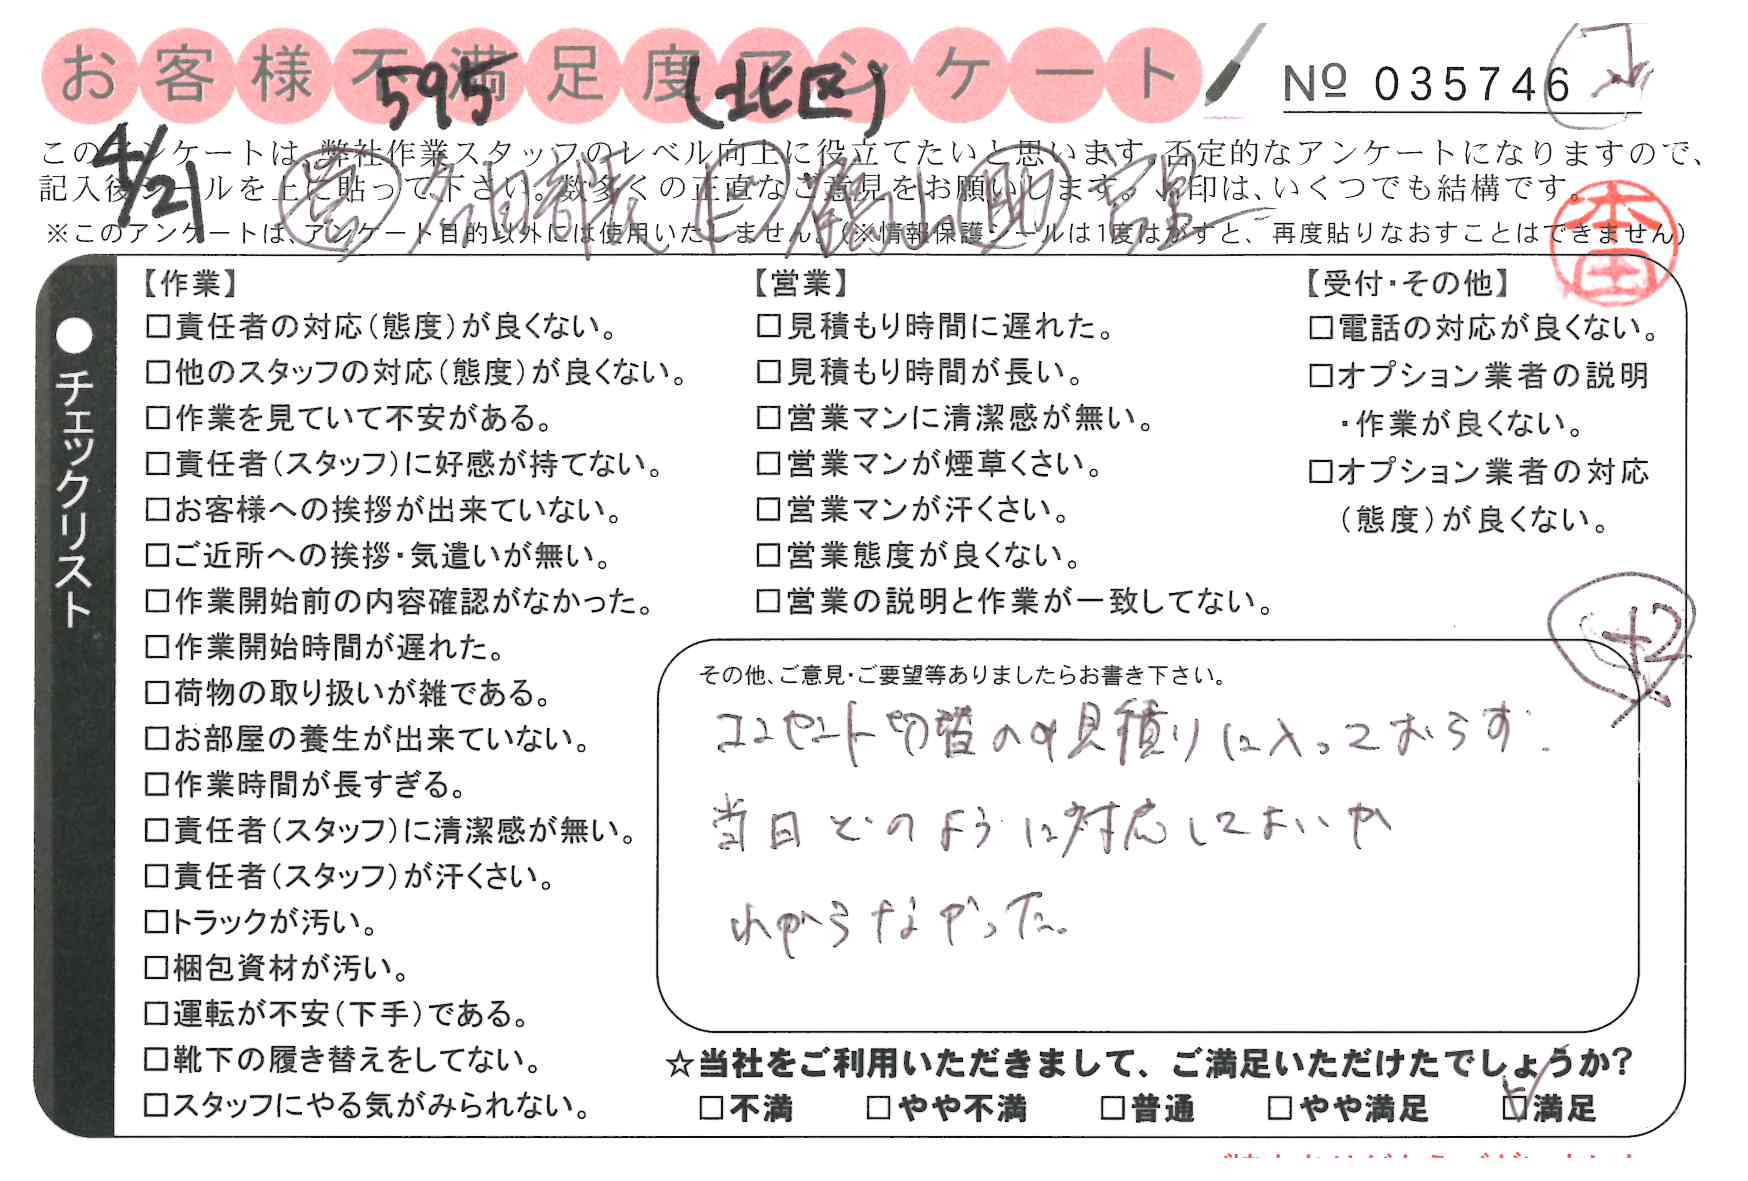 お客様不満足度アンケート
№ 035746
595 (北区)
4/21
このアンケートは、弊社作業スタッフのレベル向上に役立てたいと思います。否定的なアンケートになりますので、
記入後シールを上に貼って下さい。数多くの正直なご意見をお願いします。レ印は、いくつでも結構です。
※このアンケートは、アンケート目的以外には使用いたしません。(※情報保護シールは1度はがすと、再度貼りなおすことはできません)
本田
●チェックリスト
【作業】
□責任者の対応(態度)が良くない。
□他のスタッフの対応(態度)が良くない。
□作業を見ていて不安がある。
□責任者(スタッフ)に好感が持てない。
□お客様への挨拶が出来ていない。
□ご近所への挨拶・気遣いが無い。
□作業開始前の内容確認がなかった。
□作業開始時間が遅れた。
□荷物の取り扱いが雑である。
□お部屋の養生が出来ていない。
□作業時間が長すぎる。
□責任者(スタッフ)に清潔感が無い。
□責任者(スタッフ)が汗くさい。
□トラックが汚い。
□梱包資材が汚い。
□運転が不安(下手)である。
□靴下の履き替えをしてない。
□スタッフにやる気がみられない。
【営業】
□見積もり時間に遅れた。
□見積もり時間が長い。
□営業マンに清潔感が無い。
□営業マンが煙草くさい。
□営業マンが汗くさい。
□営業態度が良くない。
□営業の説明と作業が一致してない。
【受付・その他】
□電話の対応が良くない。
□オプション業者の説明
・作業が良くない。
□オプション業者の対応
(態度)が良くない。
その他、ご意見・ご要望等ありましたらお書き下さい。
コンセント切替のみ見積りに入っておらず
当日どのように対応してよいか
わからなかった。
☆当社をご利用いただきまして、ご満足いただけたでしょうか?
□不満 □やや不満 □普通 □やや満足 ☑満足